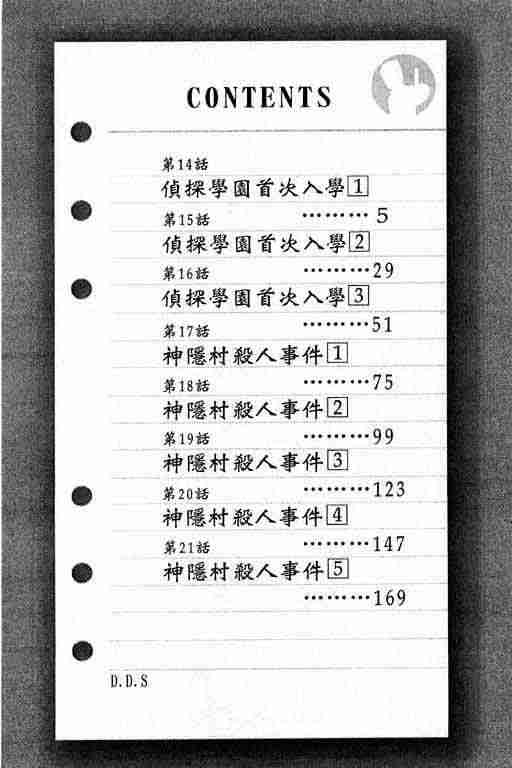 CONTENTS
第14話
偵探學園首次入學1
………5
第15話
偵探學園首次入學2
………29
第16話
偵探學園首次入學3
………51
第17話
神隱村殺人事件1
………75
第18話
神隱村殺人事件2
………99
第19話
神隱村殺人事件3
………123
第20話
神隱村殺人事件4
………147
第21話
神隱村殺人事件5
………169
D.D.S